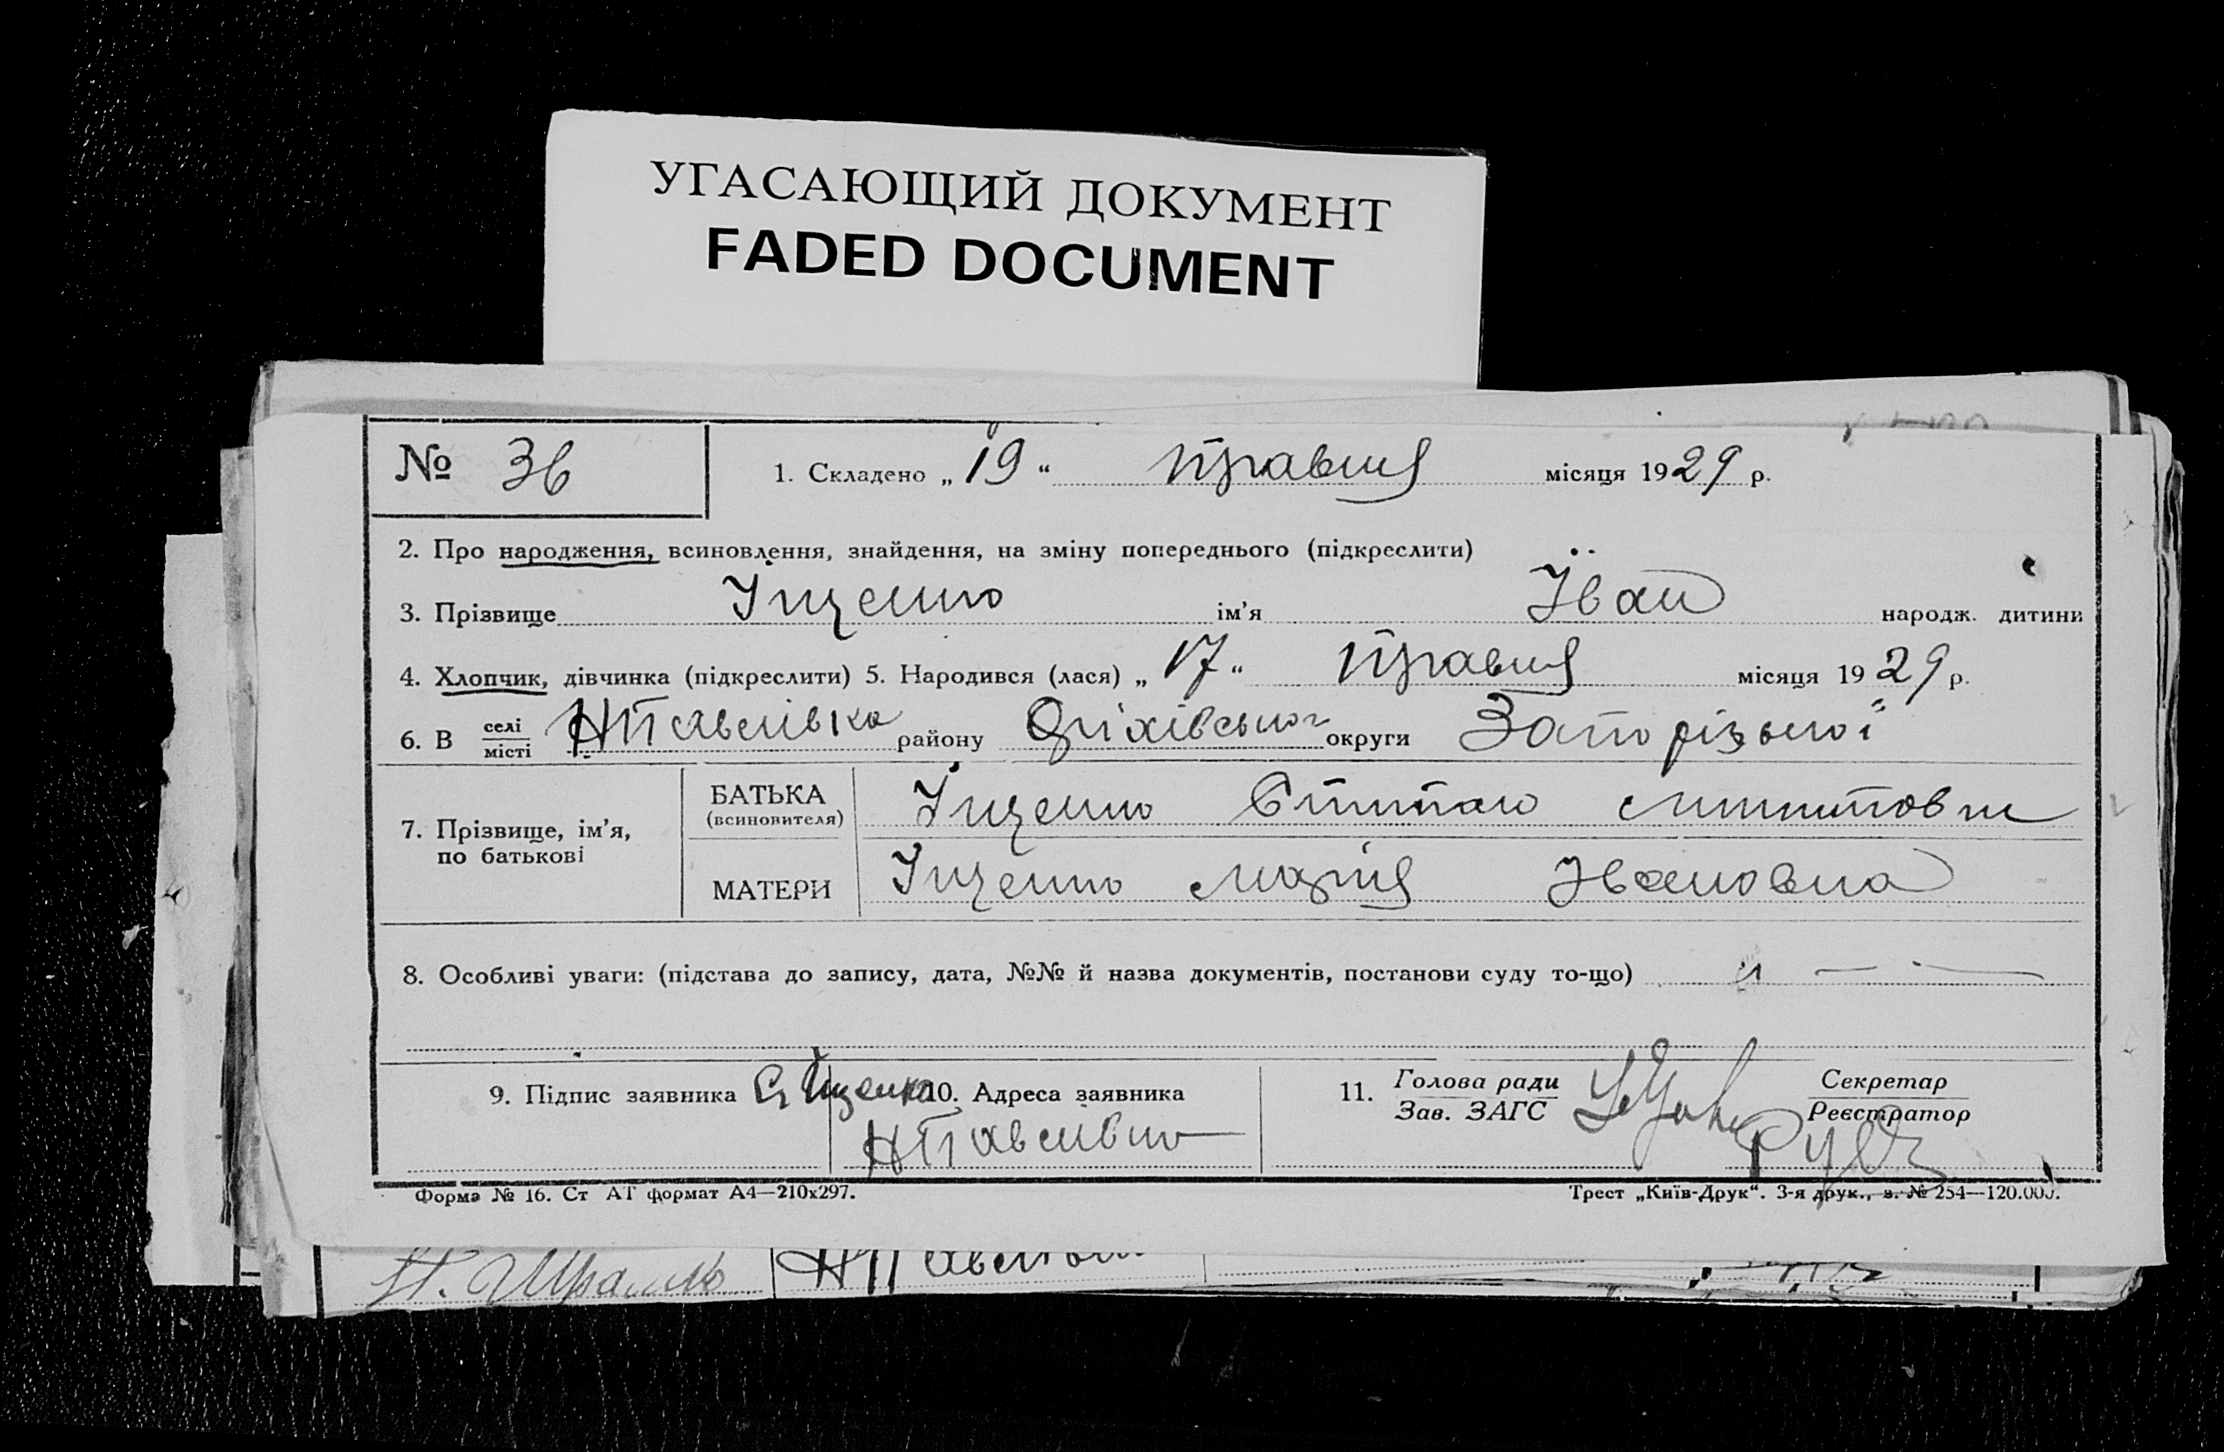 УГАСАЮЩИЙ ДОКУМЕНТ
FADED DOCUMENT
№ 36
1. Складено „19“ травня місяця 1929 р.
2. Про народження, всиновлення, знайдення, на зміну попереднього (підкреслити)
3. Прізвище Іщенко ім’я Іван народж. дитини
4. Хлопчик, дівчинка (підкреслити) 5. Народився (лася) „17“ травня місяця 1929 р.
6. В селі місті НПавлівка району Оріхівського округи Запорізької
7. Прізвище, ім’я, по батькові
БАТЬКА (всиновителя) Іщенко
МАТЕРИ Іщенко Марія Івановна
8. Особливі уваги: (підстава до запису, дата, №№ й назва документів, постанови суду то-що)
9. Підпис заявника Іщенко 10. Адреса заявника
НПавлівка
11. Голова ради Зав. ЗАГС Секретар Реєстратор
Форма № 16. Ст АТ формат А4—210х297.
Трест „Київ-Друк“. 3-я друк., з. № 254—120.000.